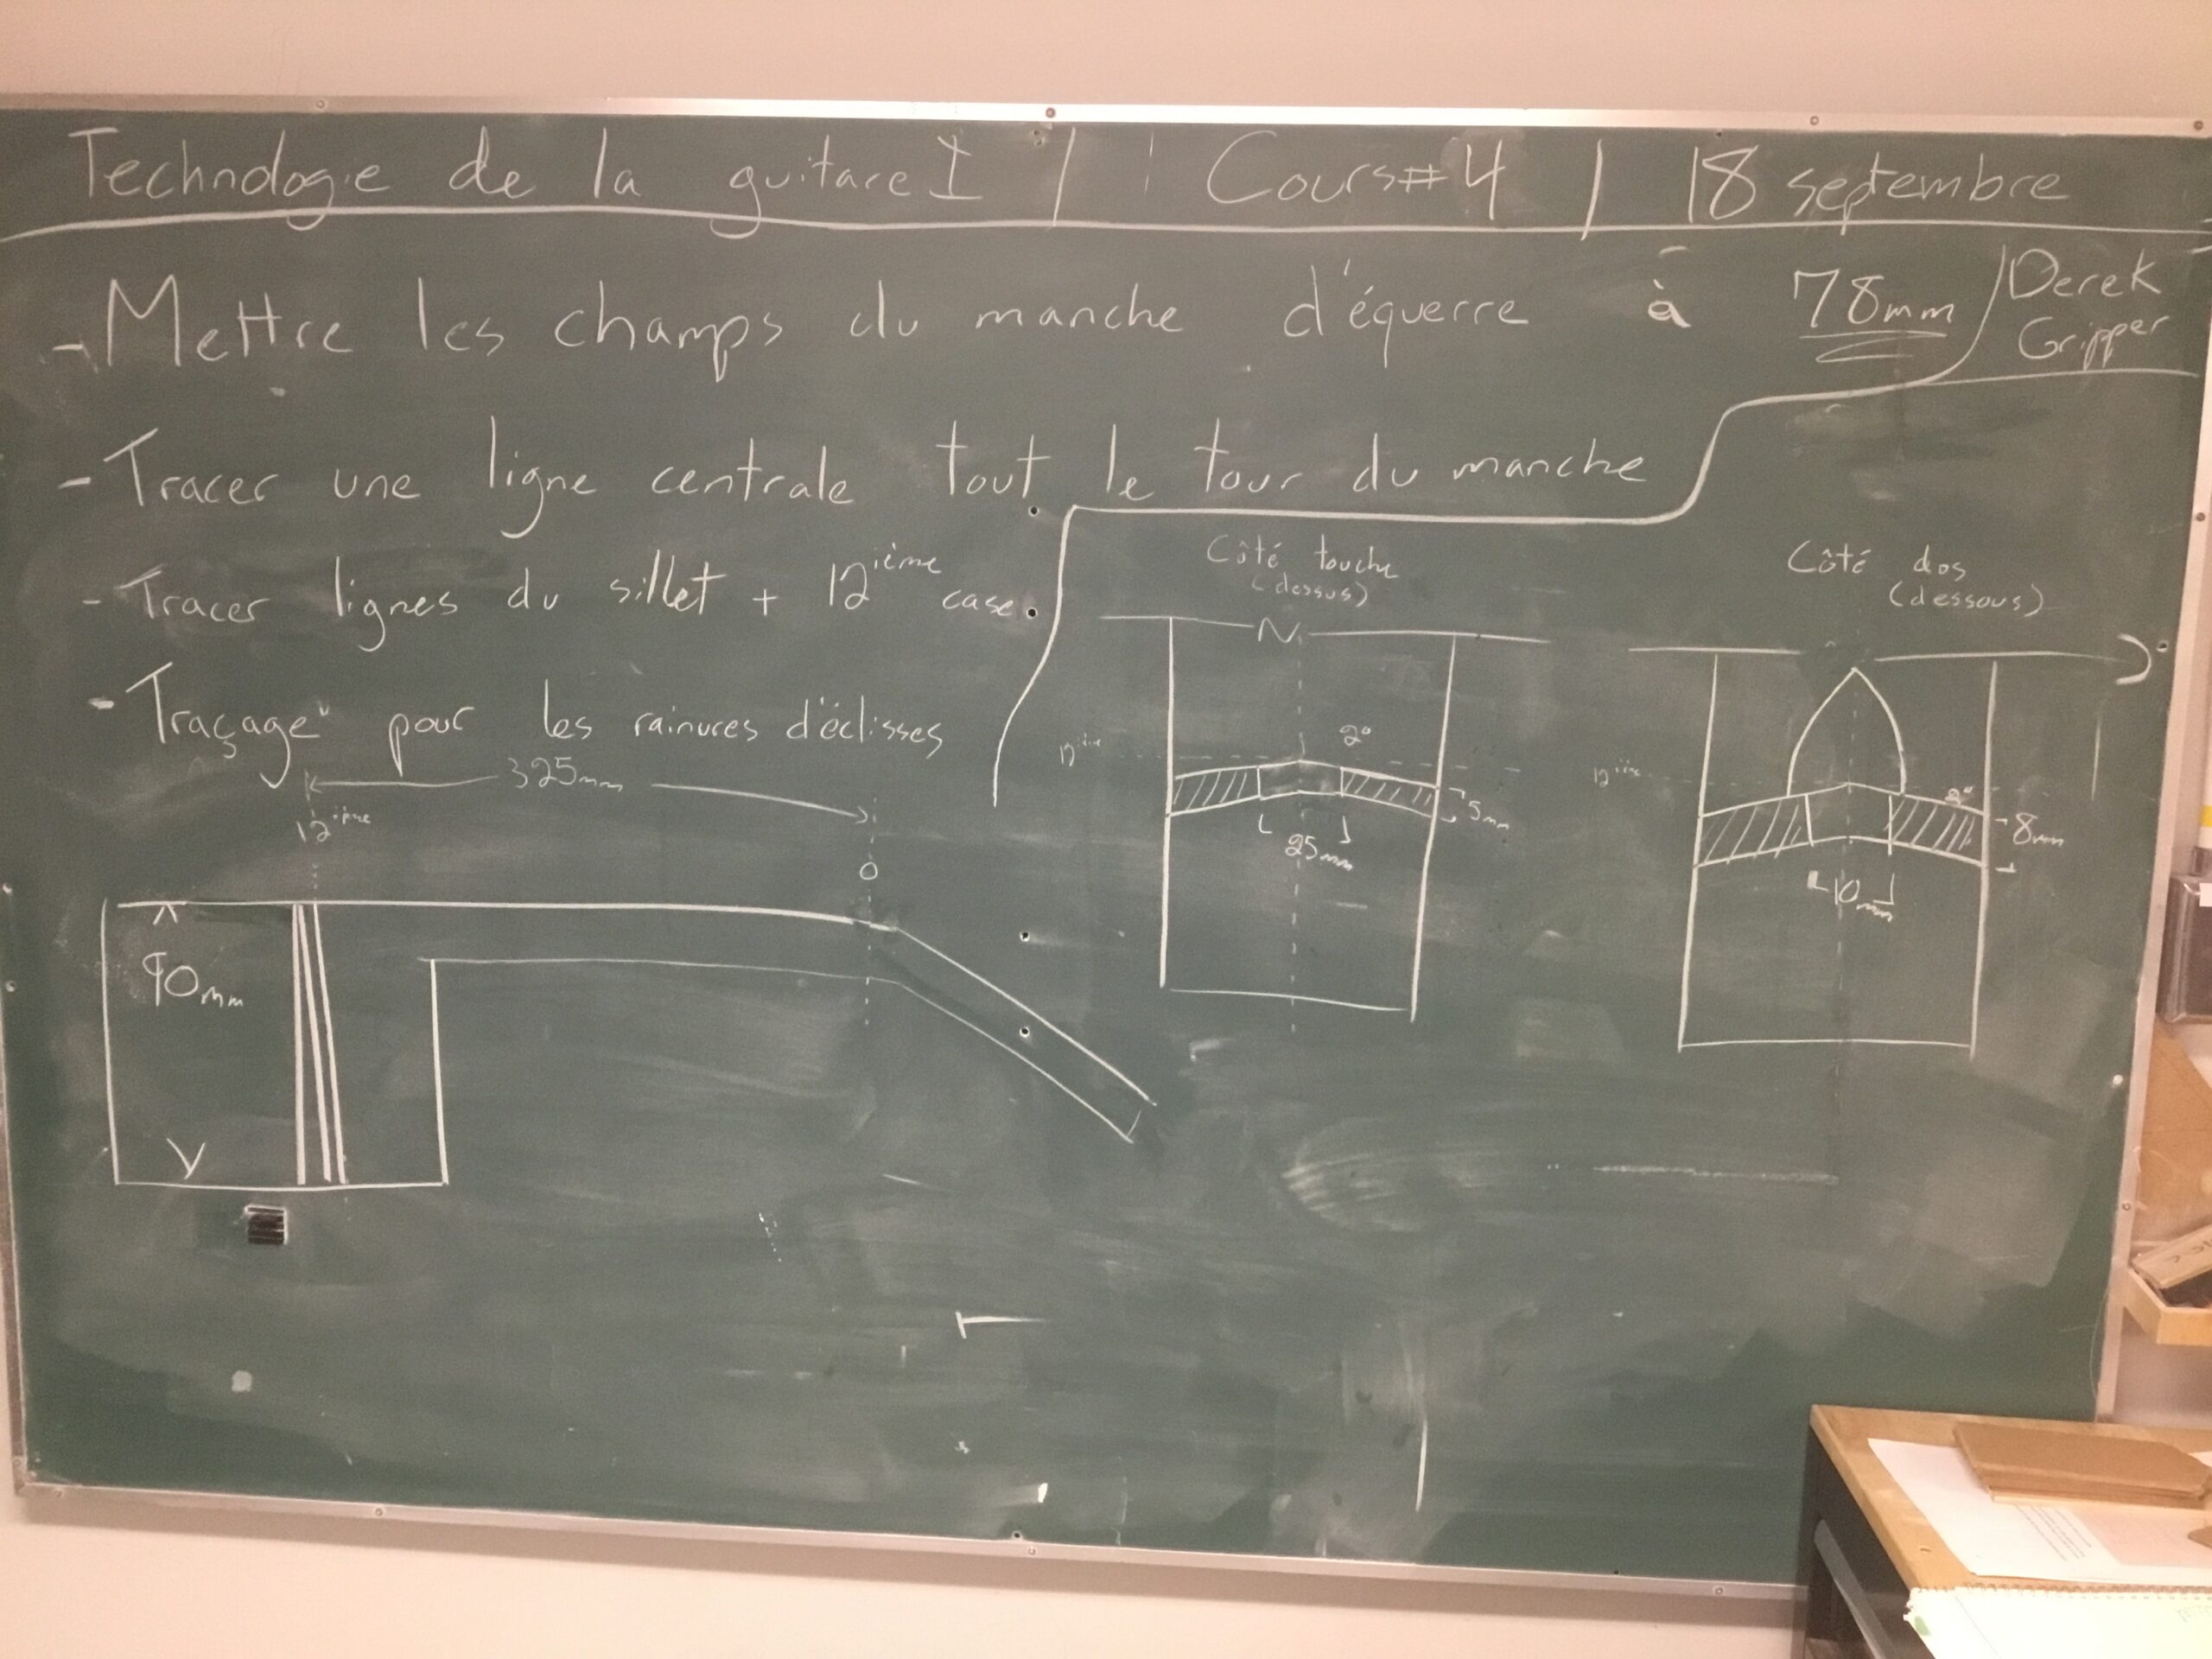 Technologie de la guitare I | Cours #4 | 18 septembre
- Mettre les champs du manche d'équerre à 78mm
Derek
Gripper
- Tracer une ligne centrale tout le tour du manche
- Tracer lignes du sillet + 12ième case.
- Traçage pour les rainures d'éclisses
325mm
12ième
0
90mm
Côté touche
(dessus)
N
12ième
2°
5mm
25mm
Côté dos
(dessous)
12ième
2°
8mm
10mm